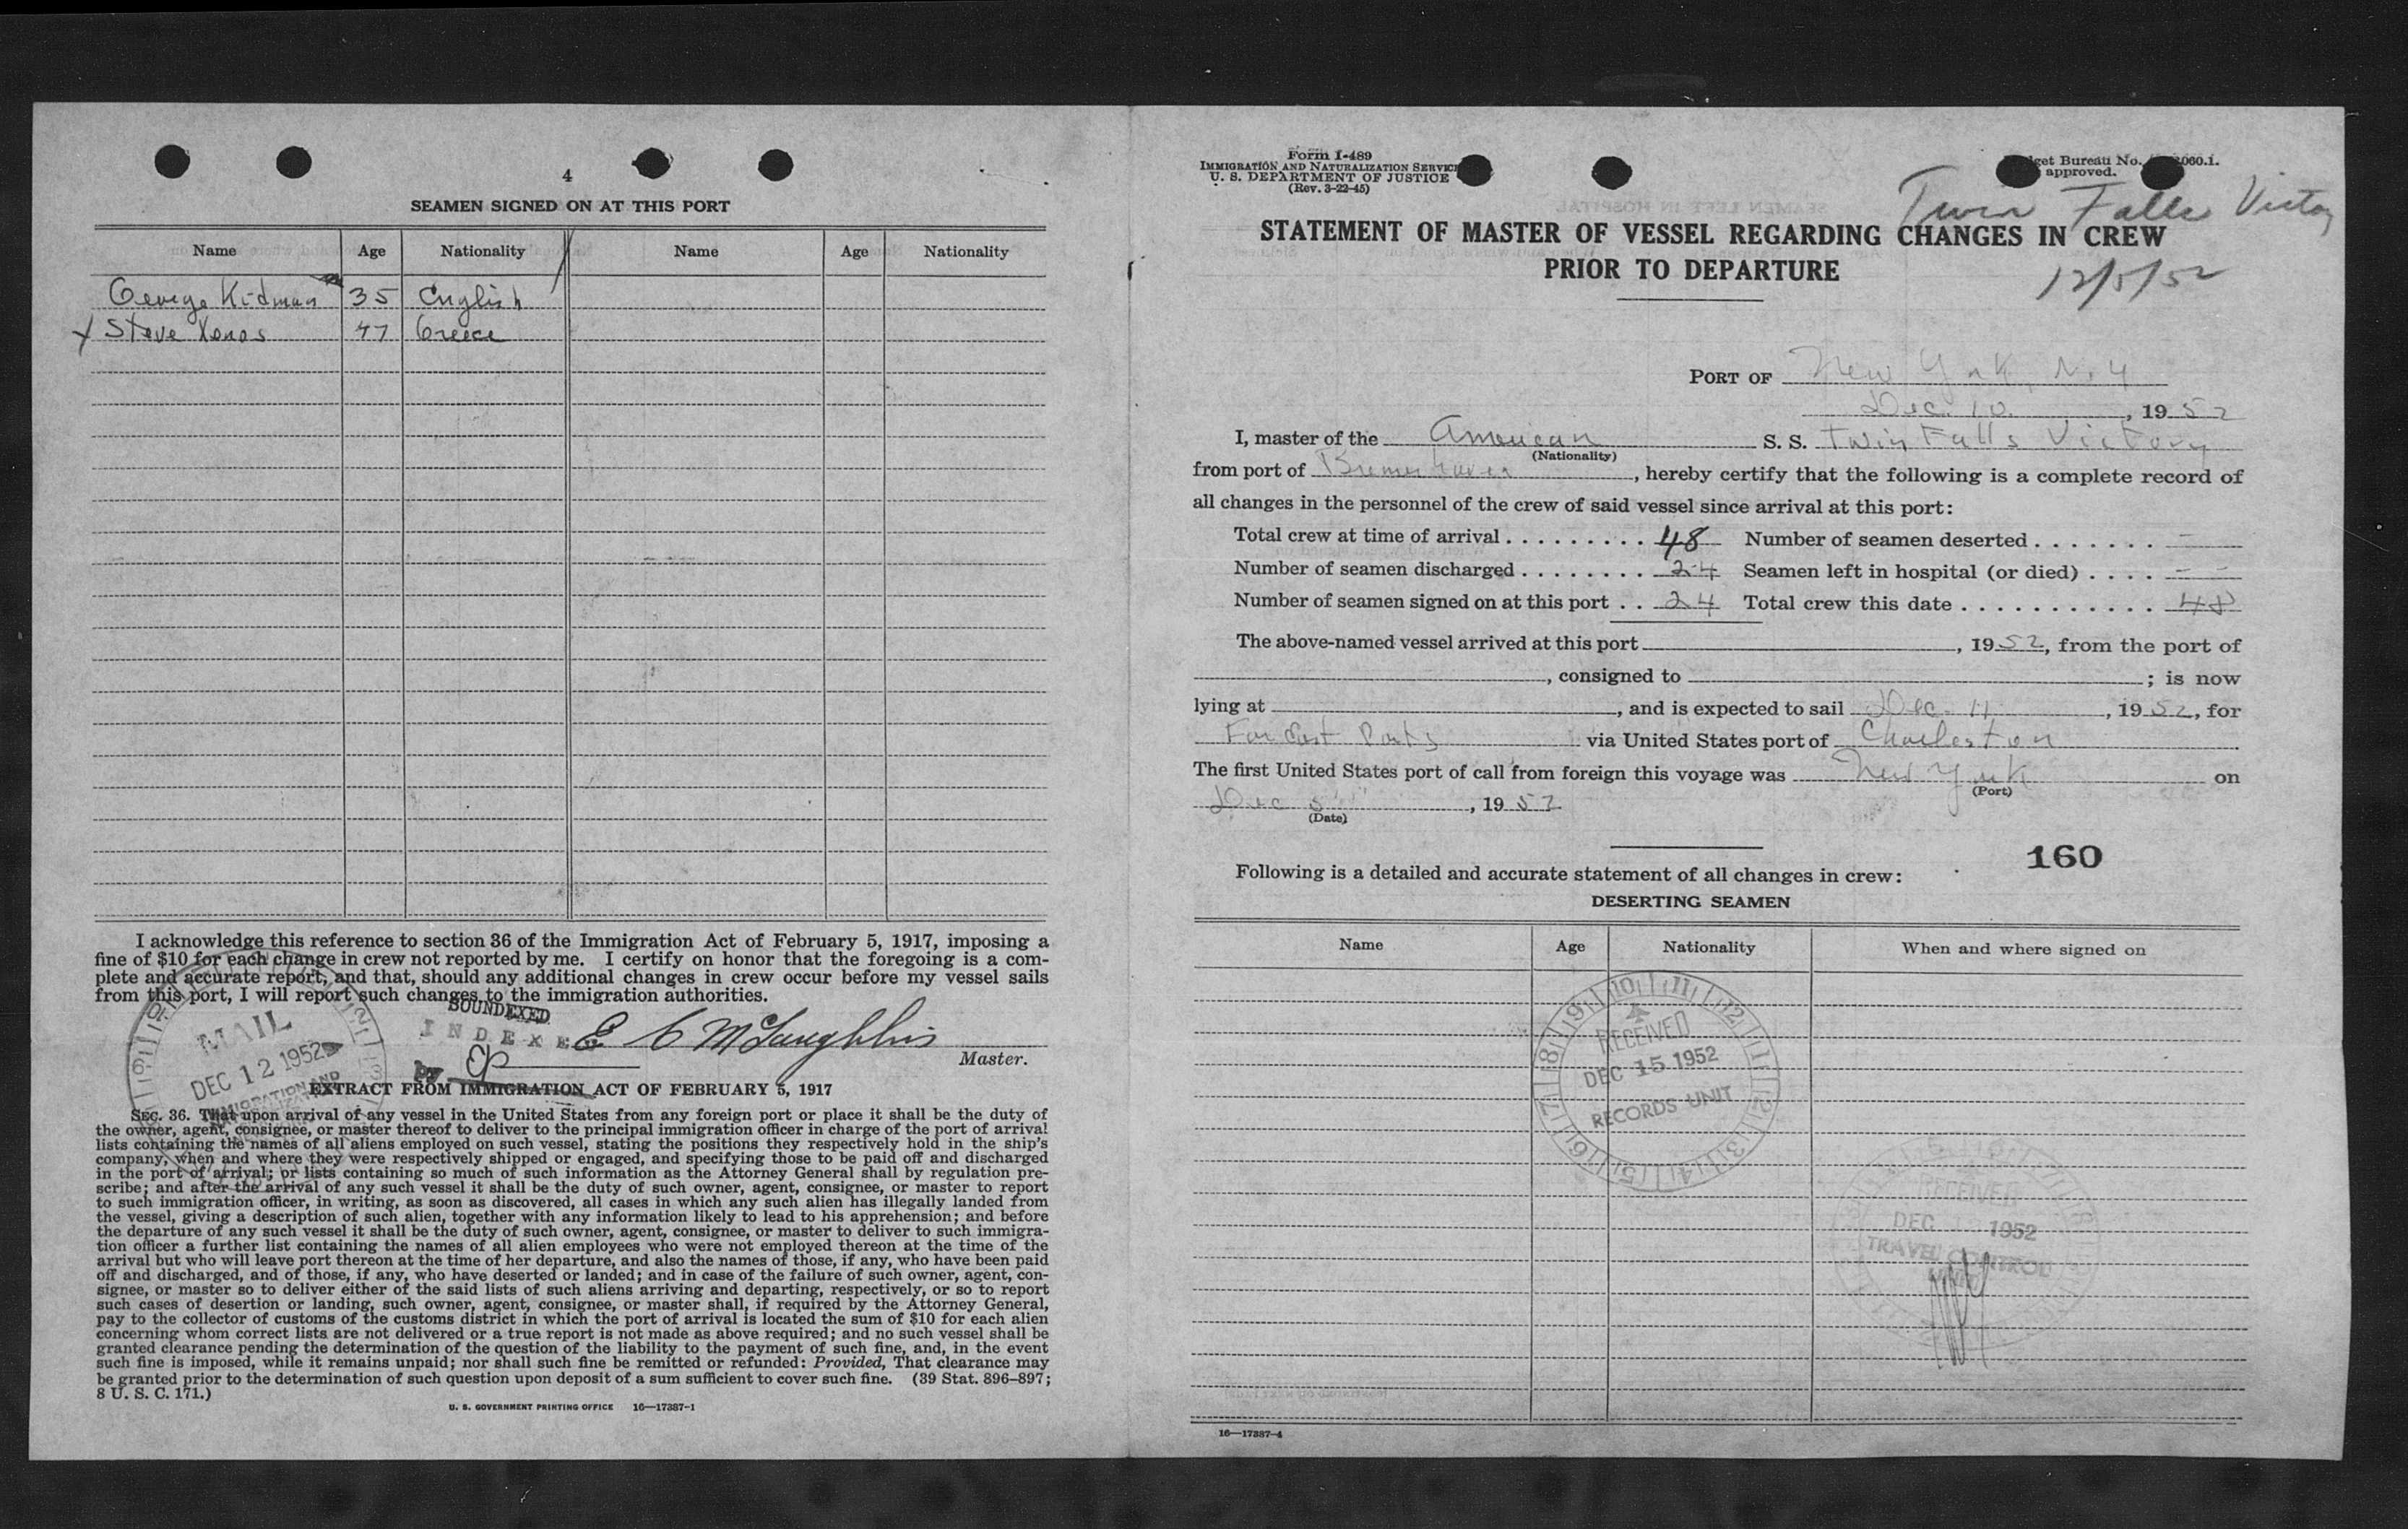 4
SEAMEN SIGNED ON AT THIS PORT
Name Age Nationality Name Age Nationality
George Kidman 35 English
x Steve Xenos 47 Greece
I acknowledge this reference to section 36 of the Immigration Act of February 5, 1917, imposing a
fine of $10 for each change in crew not reported by me. I certify on honor that the foregoing is a com-
plete and accurate report, and that, should any additional changes in crew occur before my vessel sails
from this port, I will report such changes to the immigration authorities.
SOUNDEXED
INDEXED
E C McLaughlin
Master.
by
MAIL
DEC 12 1952
EXTRACT FROM IMMIGRATION ACT OF FEBRUARY 5, 1917
SEC. 36. That upon arrival of any vessel in the United States from any foreign port or place it shall be the duty of
the owner, agent, consignee, or master thereof to deliver to the principal immigration officer in charge of the port of arrival
lists containing the names of all aliens employed on such vessel, stating the positions they respectively hold in the ship's
company, when and where they were respectively shipped or engaged, and specifying those to be paid off and discharged
in the port of arrival; or lists containing so much of such information as the Attorney General shall by regulation pre-
scribe; and after the arrival of any such vessel it shall be the duty of such owner, agent, consignee, or master to report
to such immigration officer, in writing, as soon as discovered, all cases in which any such alien has illegally landed from
the vessel, giving a description of such alien, together with any information likely to lead to his apprehension; and before
the departure of any such vessel it shall be the duty of such owner, agent, consignee, or master to deliver to such immigra-
tion officer a further list containing the names of all alien employees who were not employed thereon at the time of the
arrival but who will leave port thereon at the time of her departure, and also the names of those, if any, who have been paid
off and discharged, and of those, if any, who have deserted or landed; and in case of the failure of such owner, agent, con-
signee, or master so to deliver either of the said lists of such aliens arriving and departing, respectively, or so to report
such cases of desertion or landing, such owner, agent, consignee, or master shall, if required by the Attorney General,
pay to the collector of customs of the customs district in which the port of arrival is located the sum of $10 for each alien
concerning whom correct lists are not delivered or a true report is not made as above required; and no such vessel shall be
granted clearance pending the determination of the question of the liability to the payment of such fine, and, in the event
such fine is imposed, while it remains unpaid; nor shall such fine be remitted or refunded: Provided, That clearance may
be granted prior to the determination of such question upon deposit of a sum sufficient to cover such fine. (39 Stat. 896–897;
8 U. S. C. 171.)
U. S. GOVERNMENT PRINTING OFFICE 16—17387-1
Form I-489
IMMIGRATION AND NATURALIZATION SERVICE
U. S. DEPARTMENT OF JUSTICE
(Rev. 3-22-45)
get Bureau No. 060.1.
approved.
Twin Falls Victory
STATEMENT OF MASTER OF VESSEL REGARDING CHANGES IN CREW
PRIOR TO DEPARTURE
12/5/52
PORT OF New York, N.Y
Dec. 10, 1952
I, master of the American S. S. Twin Falls Victory
(Nationality)
from port of Bremerhaven, hereby certify that the following is a complete record of
all changes in the personnel of the crew of said vessel since arrival at this port:
Total crew at time of arrival . . . . . . . . . 48 Number of seamen deserted . . . . . . . -
Number of seamen discharged . . . . . . . . 24 Seamen left in hospital (or died) . . . . - -
Number of seamen signed on at this port . . 24 Total crew this date . . . . . . . . . . . 48
The above-named vessel arrived at this port , 1952, from the port of
, consigned to ; is now
lying at , and is expected to sail Dec. 11, 1952, for
Far East Ports via United States port of Charleston
The first United States port of call from foreign this voyage was New York on
(Port)
Dec 5, 1952
(Date)
160
Following is a detailed and accurate statement of all changes in crew:
DESERTING SEAMEN
Name Age Nationality When and where signed on
RECEIVED
DEC 15 1952
RECORDS UNIT
RECEIVED
DEC 1952
TRAVEL CONTROL
UNIT
16—17387-4